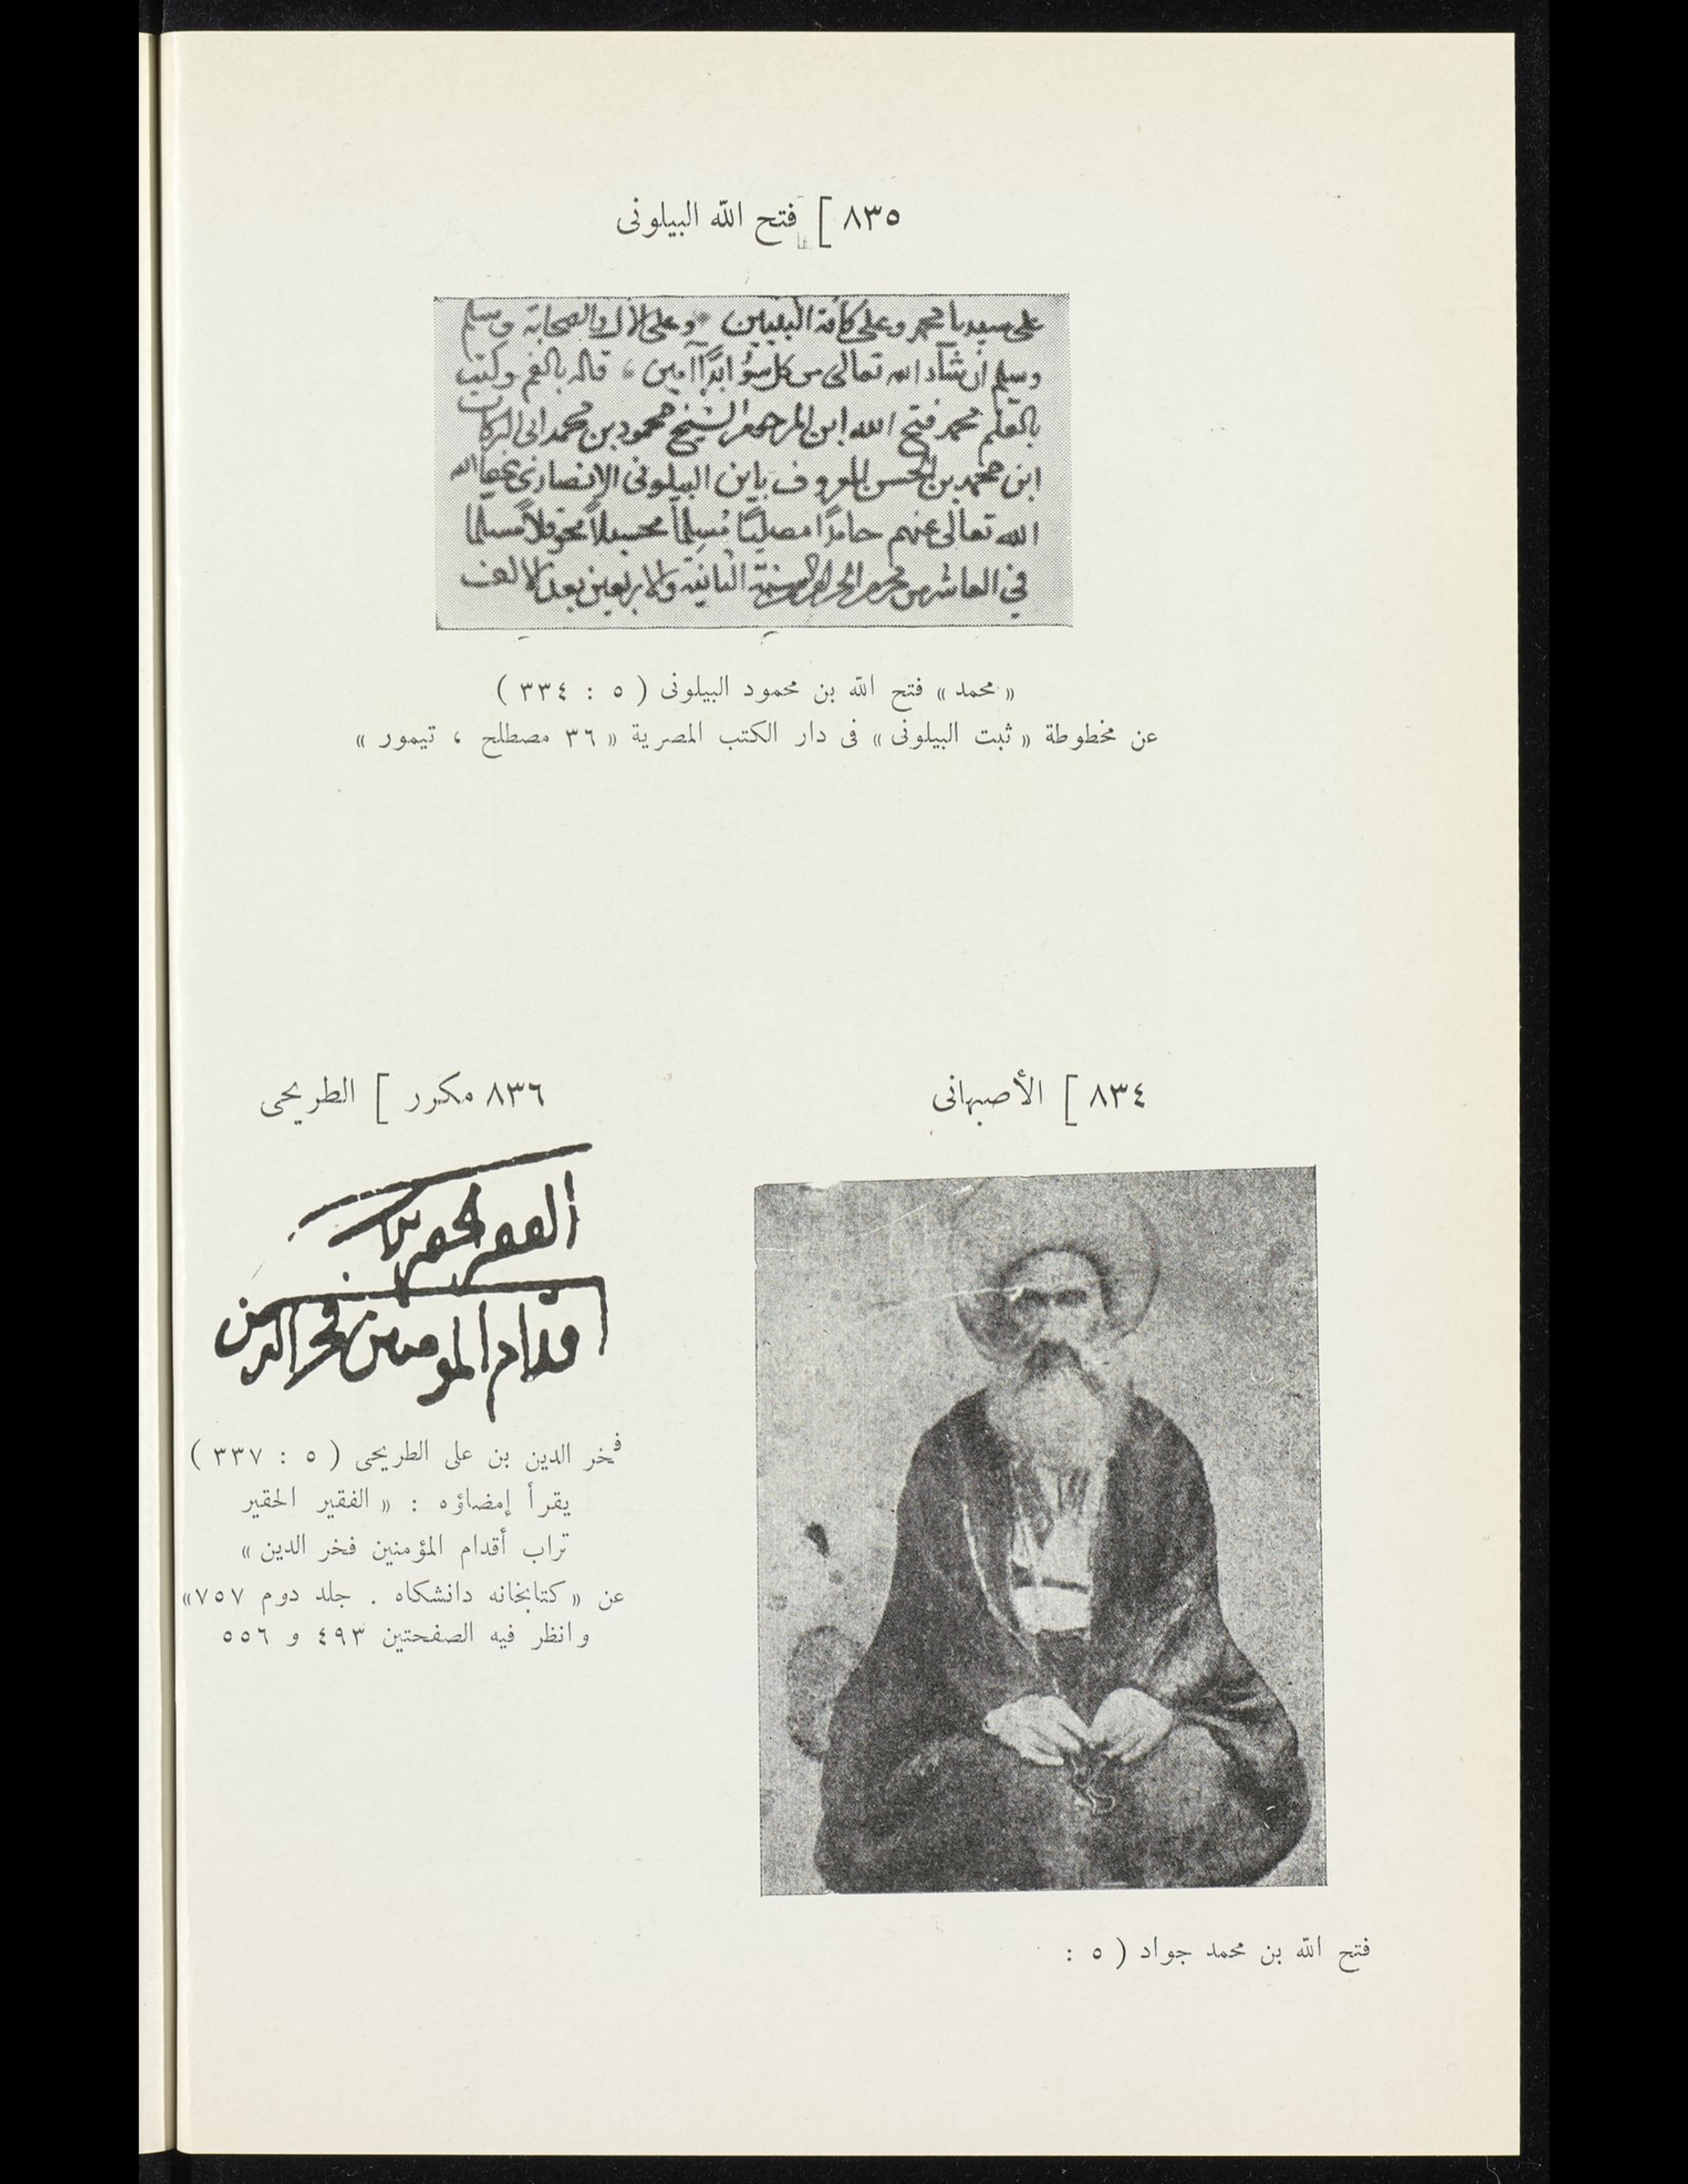 ٨٣٥ [ فتح الله البيلونى
على سيدنا محمد وعلى كافة النبيين وعلى الال والصحابة وسلم
وسلم ان شاء الله تعالى من كل سؤ ابدًا آمين ، قاله بالفم وكتب
بالقلم محمد فتح الله ابن المرحوم الشيخ محمود بن محمد ابى البركات
ابن محمد بن الحسن المعروف باين البيلونى الانصارى عفا الله
الله تعالى عنهم حامدًا مصليًا مُسلِمًا محسبلاً محوقلاً مسلما
في العاشر من محرم الحرام سنة الثانية والاربعين بعد الالف
« محمد » فتح الله بن محمود البيلونى ( ٥ : ٣٣٤ )
عن مخطوطة « ثبت البيلونى » فى دار الكتب المصرية « ٣٦ مصطلح ، تيمور »
٨٣٤ [ الأصبهانى
فتح الله بن محمد جواد ( ٥ :
٨٣٦ مكرر [ الطريحى
الفقير الحقير تراب
اقدام المومنين فخر الدين
فخر الدين بن على الطريحى ( ٥ : ٣٣٧ )
يقرأ إمضاؤه : « الفقير الحقير
تراب أقدام المؤمنين فخر الدين »
عن « كتابخانه دانشكاه . جلد دوم ٧٥٧»
وانظر فيه الصفحتين ٤٩٣ و ٥٥٦